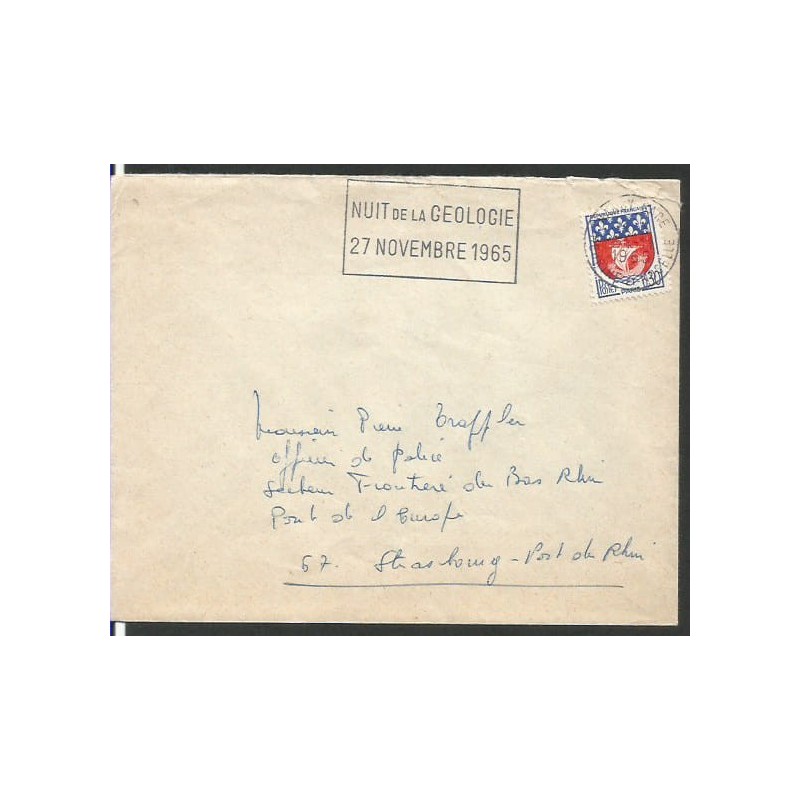 NUIT DE LA GEOLOGIE
27 NOVEMBRE 1965
0,30
PARIS
Monsieur Pierre Traffler
Officier de Police
Secteur Frontière du Bas Rhin
Pont de l'Europe
67. Strasbourg - Port du Rhin